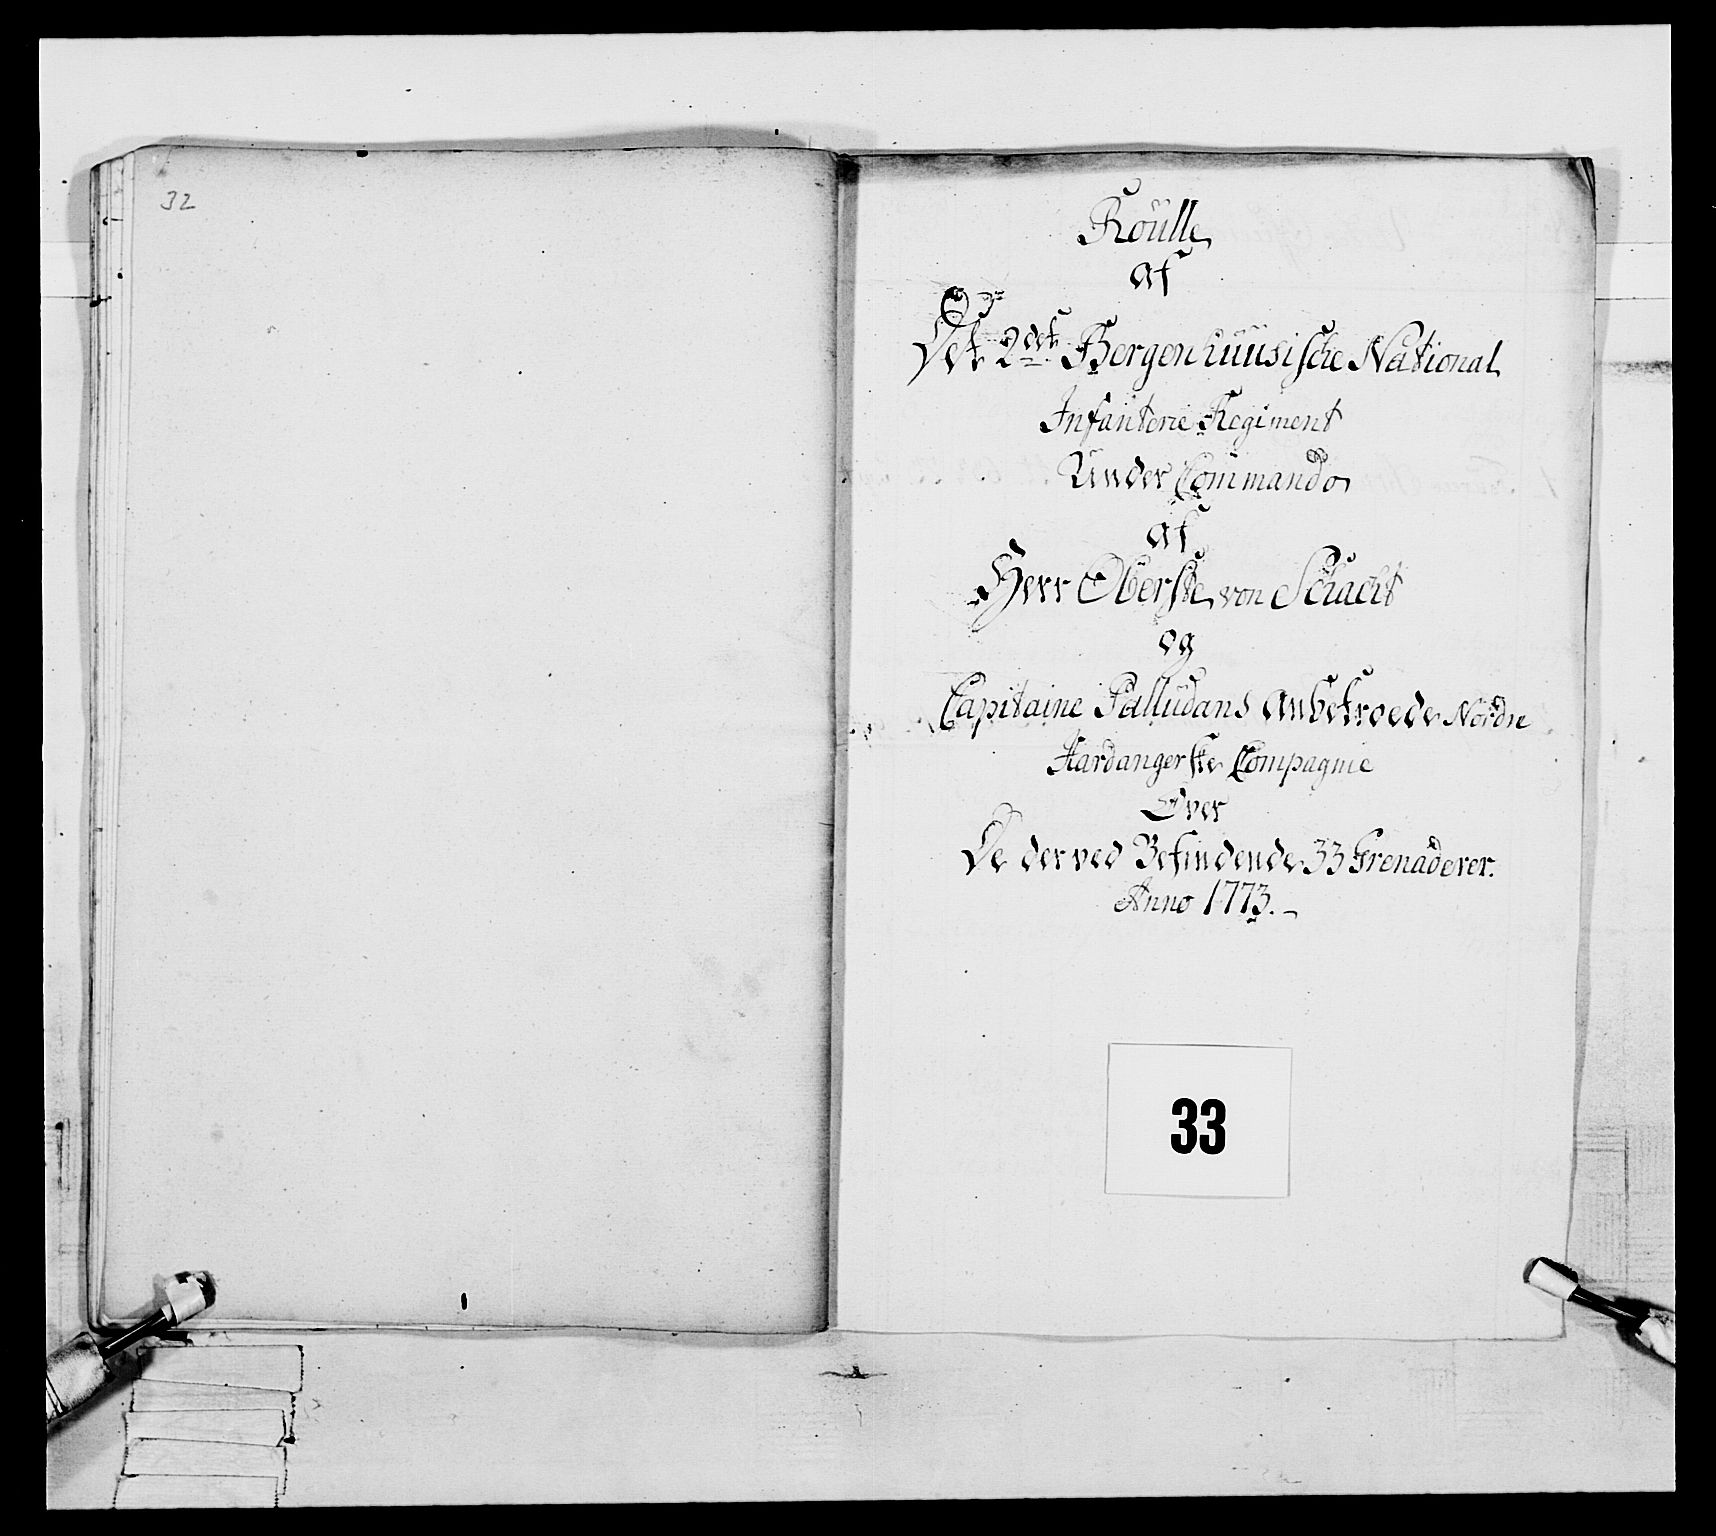 32
Roulle
af
Det 2det Bergenhuusische National
Infanterie Regiment
Under Commando
af
Herr Oberste von Schacht
og
Capitaine Palludans anbetroede Nordre
Hardangerske Compagnie
Over
De derved Befindende 33 Grenaderer.
Anno 1773.
33